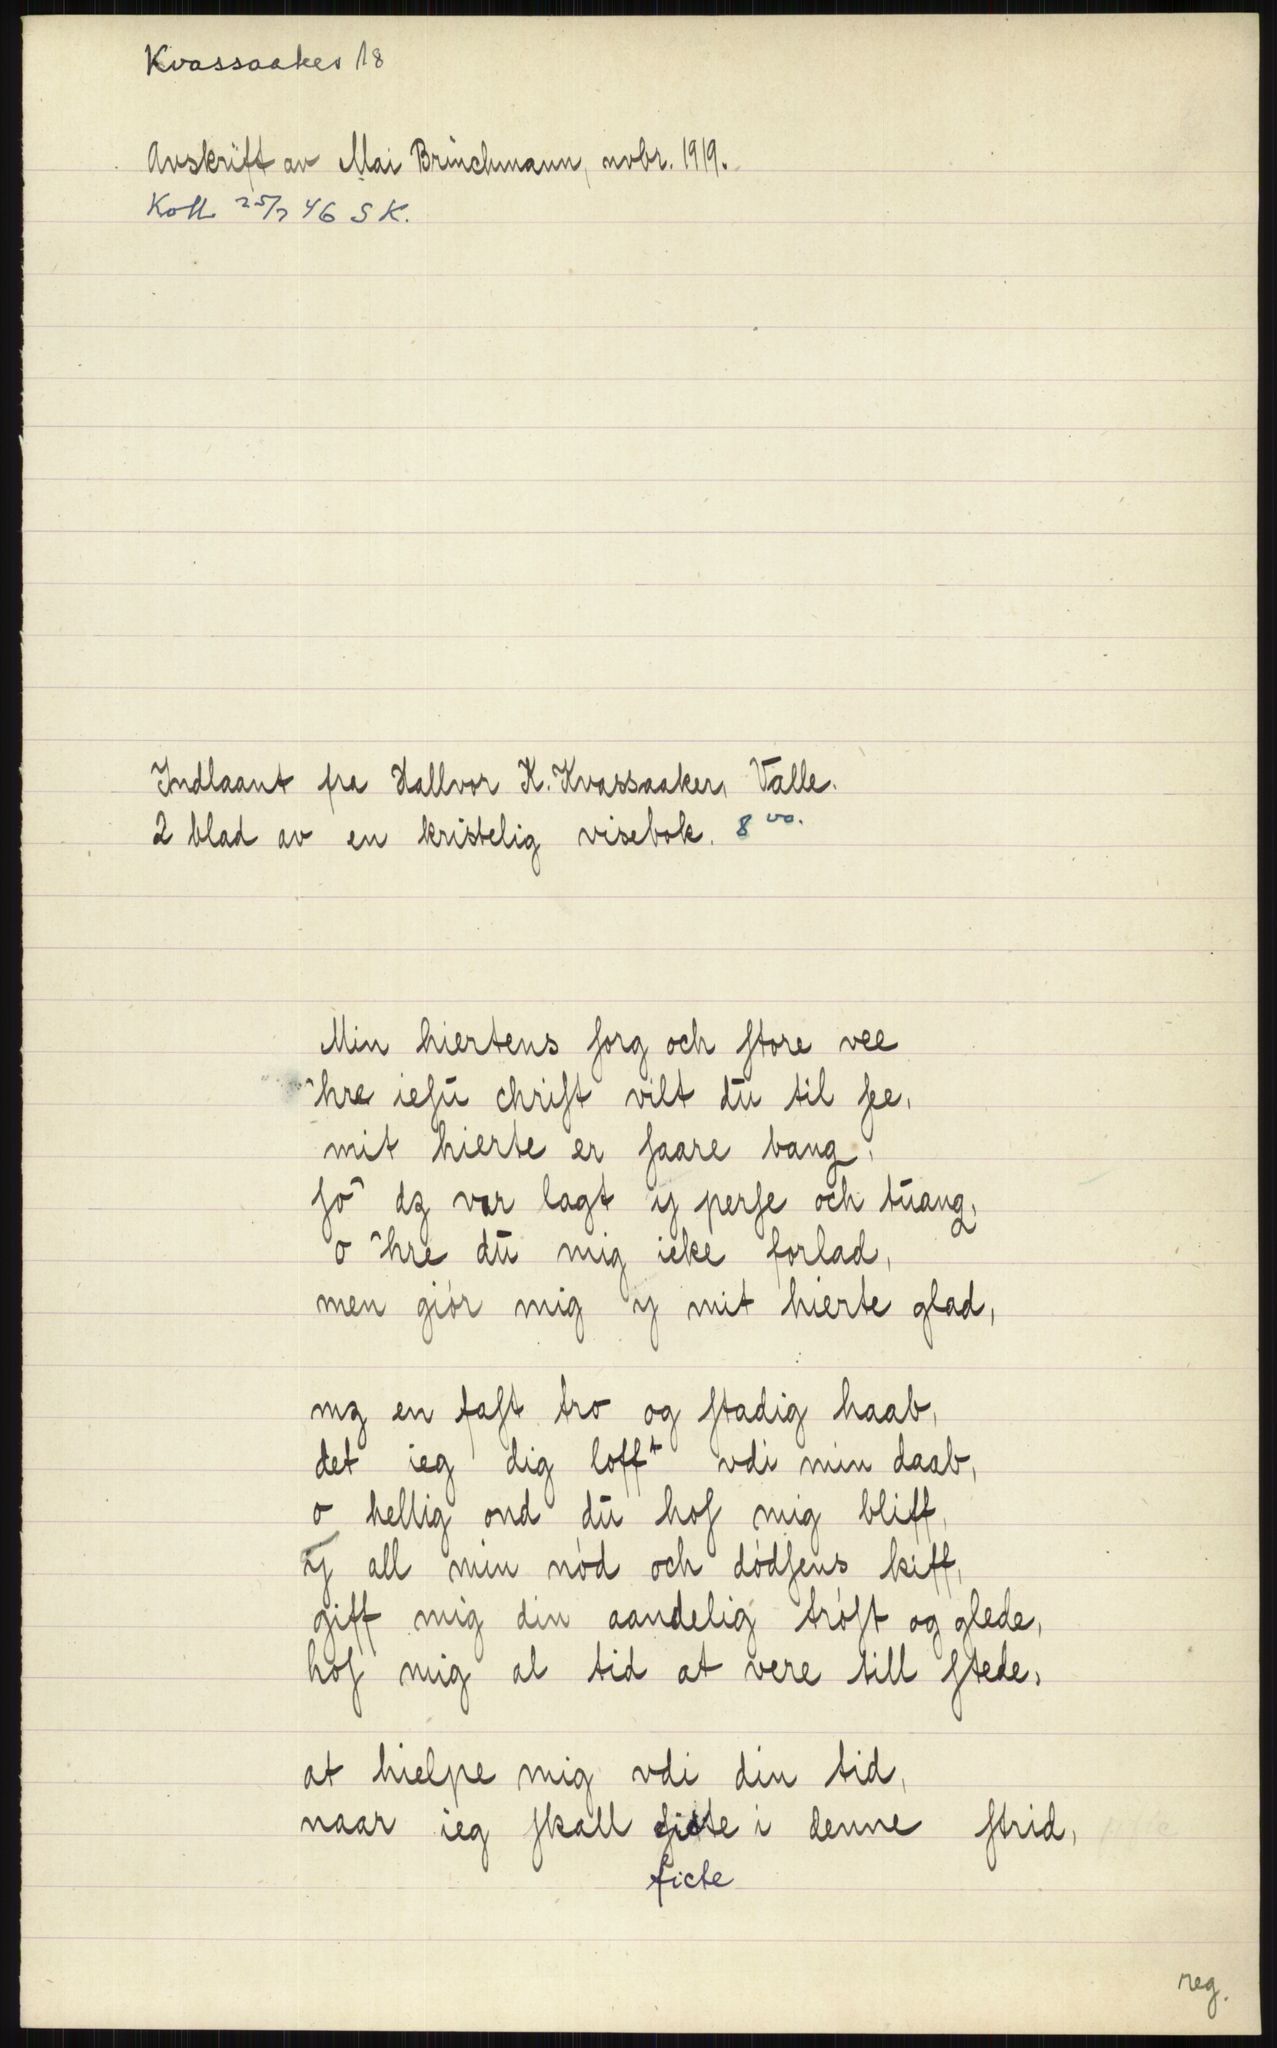 Kvassaaker 18
Avskrift av Mai Brinchmann, nvbr. 1919.
Koll 25/7 46 S K.
Indlaant fra Hallvor K. Kvassaaker, Valle.
2 blad av en kristelig visebok. 8 vo.
Min hiertens ſorg och ſtore vee
h̃re ieſu chriſt vilt du til ſee,
mit hierte er ſaare bang,
ſo dz var lagt ij perſe och tuang,
o h̃re du mig icke forlad,
men giór mig ij mit hierte glad,
mz en faſt tro og ſtadig haab,
det ieg dig lofft vdi min daab,
o hellig ond du hoſ mig bliff,
ij all min nód och dódſens kiff,
giff mig din aandelig tróſt og glede,
hoſ mig al tid at vere till ſtede,
at hielpe mig vdi din tid,
naar ieg ſkall ficte i denne ſtrid,
ficte
reg.